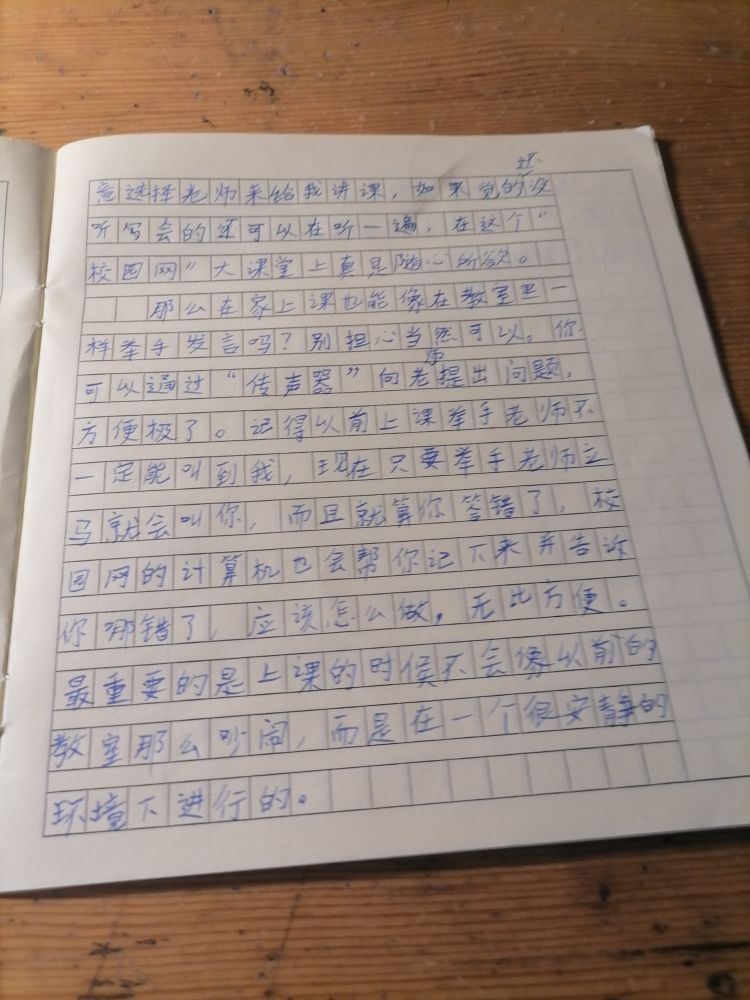 还
意选择老师来给我讲课，如果觉的没
听写会的还可以在听一遍，在这个“
校园网”大课堂上真是随心所欲。
那么在家上课也能像在教室里一
样举手发言吗？别担心当然可以。你
师
可以通过“传声器”向老提出问题，
方便极了。记得以前上课举手老师不
一定能叫到我，现在只要举手老师立
马就会叫你，而且就算你答错了，校
园网的计算机也会帮你记下来并告诉
你哪错了，应该怎么做，无比方便。
最重要的是上课的时候不会像以前的
教室那么吵闹，而是在一个很安静的
环境下进行的。